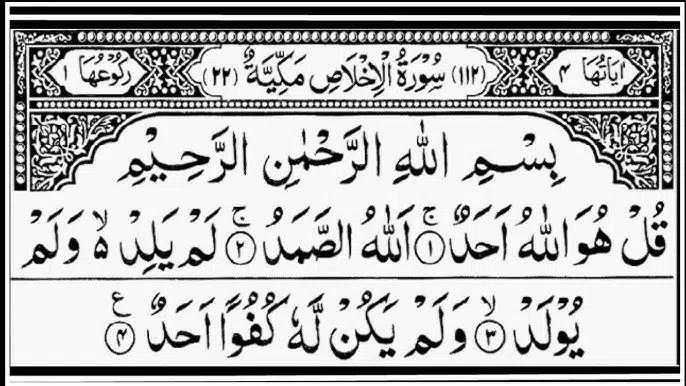 اٰیَاتُهَا ۴ (۱۱۲) سُوْرَةُ الْاِخْلَاصِ مَكِّیَّةٌ (۲۲) رُكُوْعُهَا ۱
بِسْمِ اللّٰهِ الرَّحْمٰنِ الرَّحِیْمِ
قُلْ هُوَ اللّٰهُ اَحَدٌ ۚ﴿۱﴾ اَللّٰهُ الصَّمَدُ ۚ﴿۲﴾ لَمْ یَلِدْ ۵ۙ وَلَمْ
یُوْلَدْ ۙ﴿۳﴾ وَلَمْ یَكُنْ لَّهٗ كُفُوًا اَحَدٌ ﴿۴﴾ ع